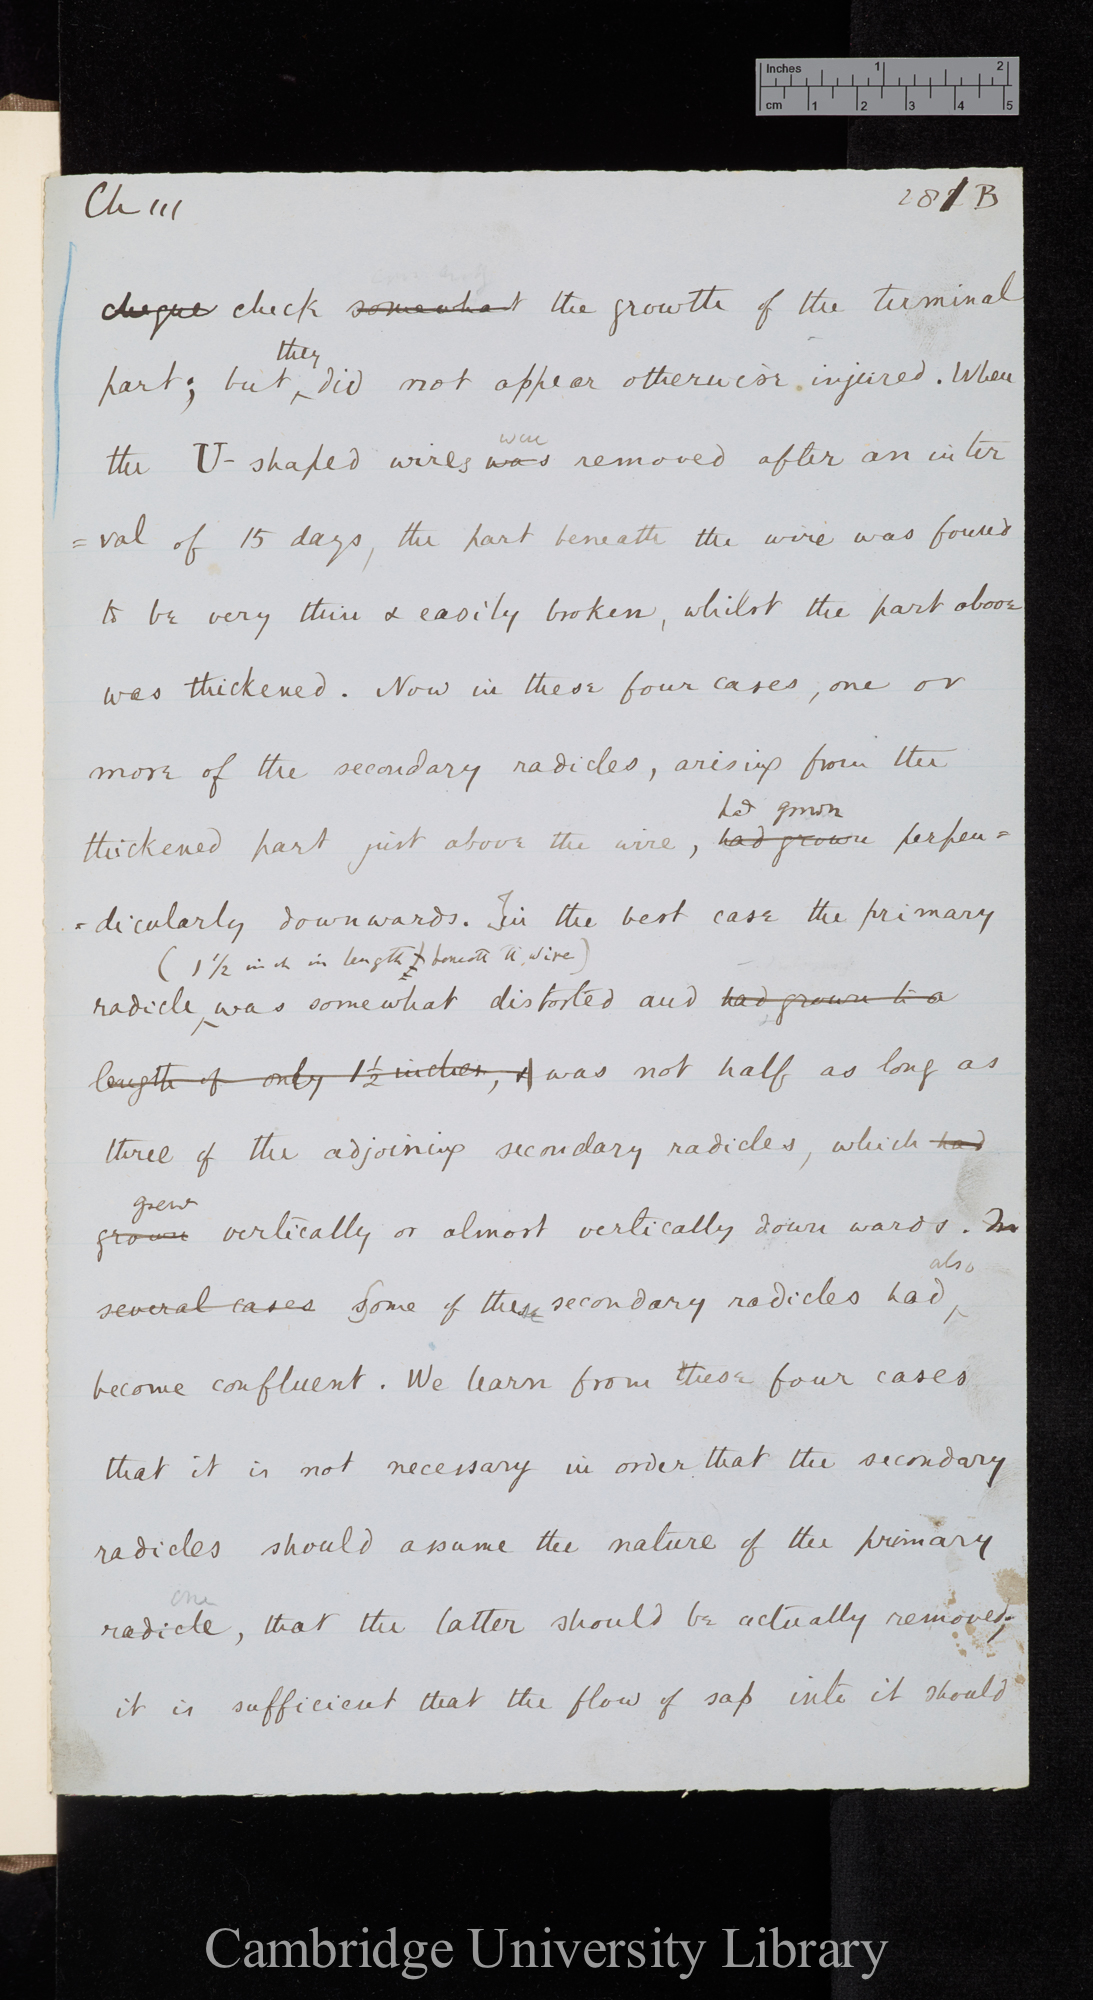 Inches 1 2
cm 1 2 3 4 5
Ch III 281 B
cheque check somewhat the growth of the terminal
they
part; but did not appear otherwise injured. When
were
the U-shaped wires was removed after an inter
=val of 15 days, the part beneath the wire was found
to be very thin & easily broken, whilst the part above
was thickened. Now in these four cases, one or
more of the secondary radicles, arising from the
had grown
thickened part just above the wire, had grown perpen=
=dicularly downwards. In the best case the primary
(1 1/2 inch in length beneath the wire)
radicle was somewhat distorted and had grown to a
length of only 1 1/2 inches, was not half as long as
three of the adjoining secondary radicles, which had
grew
grown vertically or almost vertically downwards. In
also
several cases Some of these secondary radicles had
become confluent. We learn from these four cases
that it is not necessary in order that the secondary
radicles should assume the nature of the primary
one
radicle, that the latter should be actually removed;
it is sufficient that the flow of sap into it should
Cambridge University Library